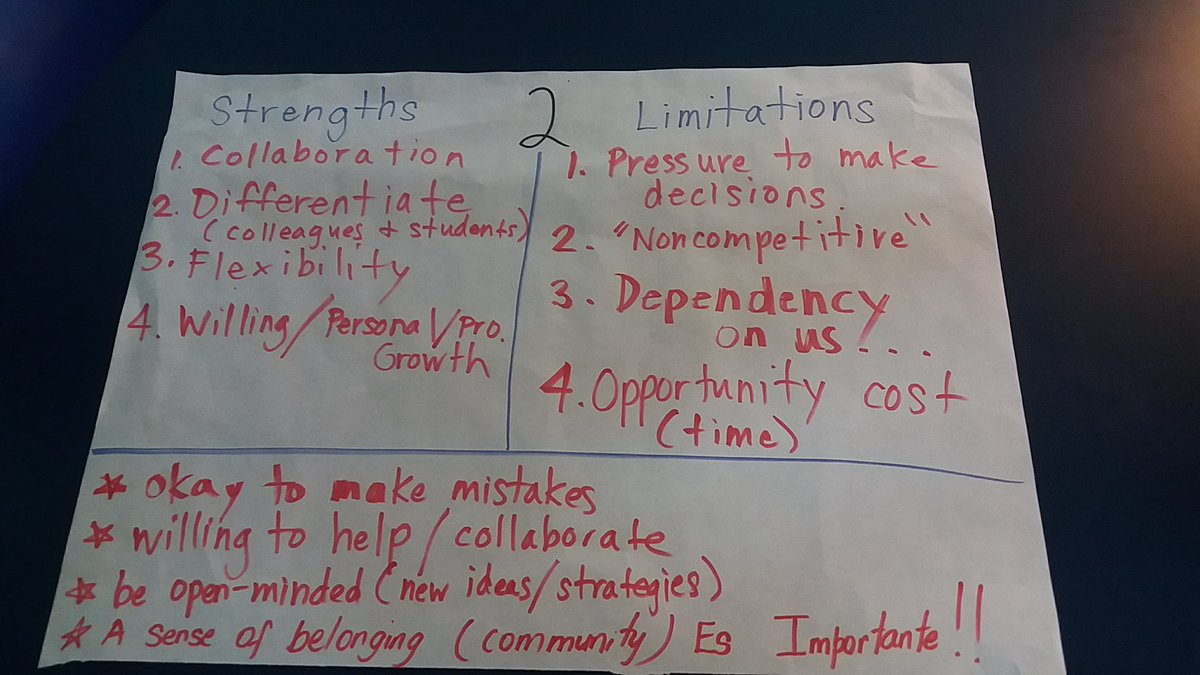 2
Strengths
1. Collaboration
2. Differentiate
(colleagues + students)
3. Flexibility
4. Willing/Personal/Pro.
Growth
Limitations
1. Pressure to make
decisions.
2. "Noncompetitive"
3. Dependency
on us!...
4. Opportunity cost
(time)
* okay to make mistakes
* willing to help/collaborate
* be open-minded (new ideas/strategies)
* A sense of belonging (community) Es Importante!!